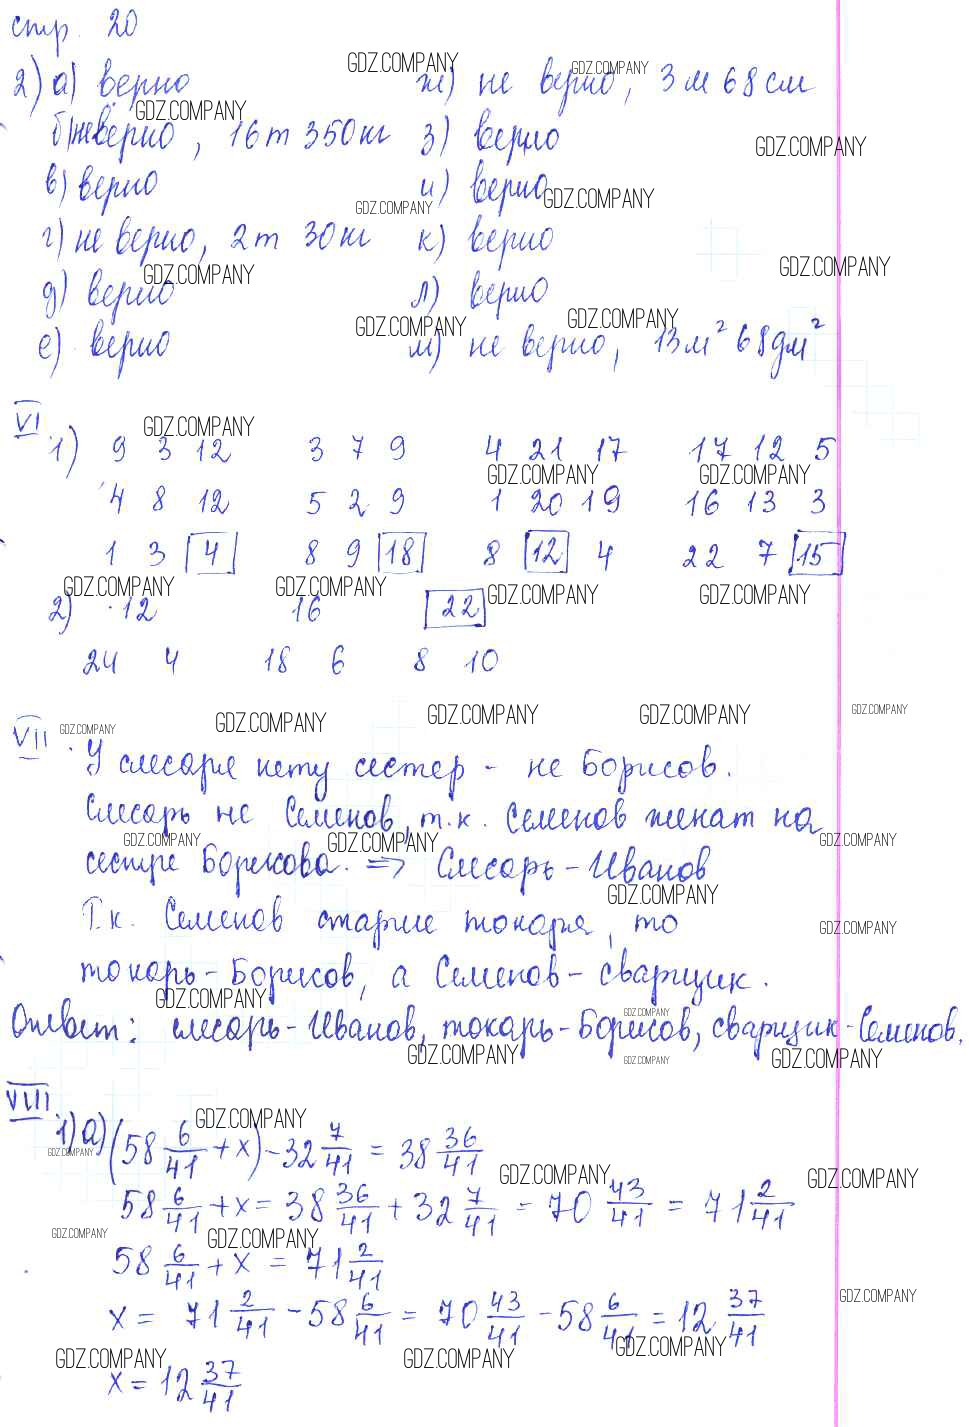 стр. 20
2) а) верно ж) не верно, 3 м 68 см
б) неверно, 16 т 350 кг з) верно
в) верно и) верно
г) не верно, 2 т 30 кг к) верно
д) верно л) верно
е) верно м) не верно, 13 м² 68 дм²
VI 1) 9 3 12 3 7 9 4 21 17 17 12 5
4 8 12 5 2 9 1 20 19 16 13 3
1 3 4 8 9 18 8 12 4 22 7 15
2) 12 16 22
24 4 18 6 8 10
VII. У слесаря нету сестер - не Борисов.
Слесарь не Семенов, т.к. Семенов женат на
сестре Борисова. => Слесарь - Иванов
Т.к. Семенов старше токаря, то
токарь - Борисов, а Семенов - сварщик.
Ответ: слесарь - Иванов, токарь - Борисов, сварщик - Семенов.
VIII. 1) а) (58 6/41 + x) - 32 7/41 = 38 36/41
58 6/41 + x = 38 36/41 + 32 7/41 = 70 43/41 = 71 2/41
58 6/41 + x = 71 2/41
x = 71 2/41 - 58 6/41 = 70 43/41 - 58 6/41 = 12 37/41
x = 12 37/41
GDZ.COMPANY